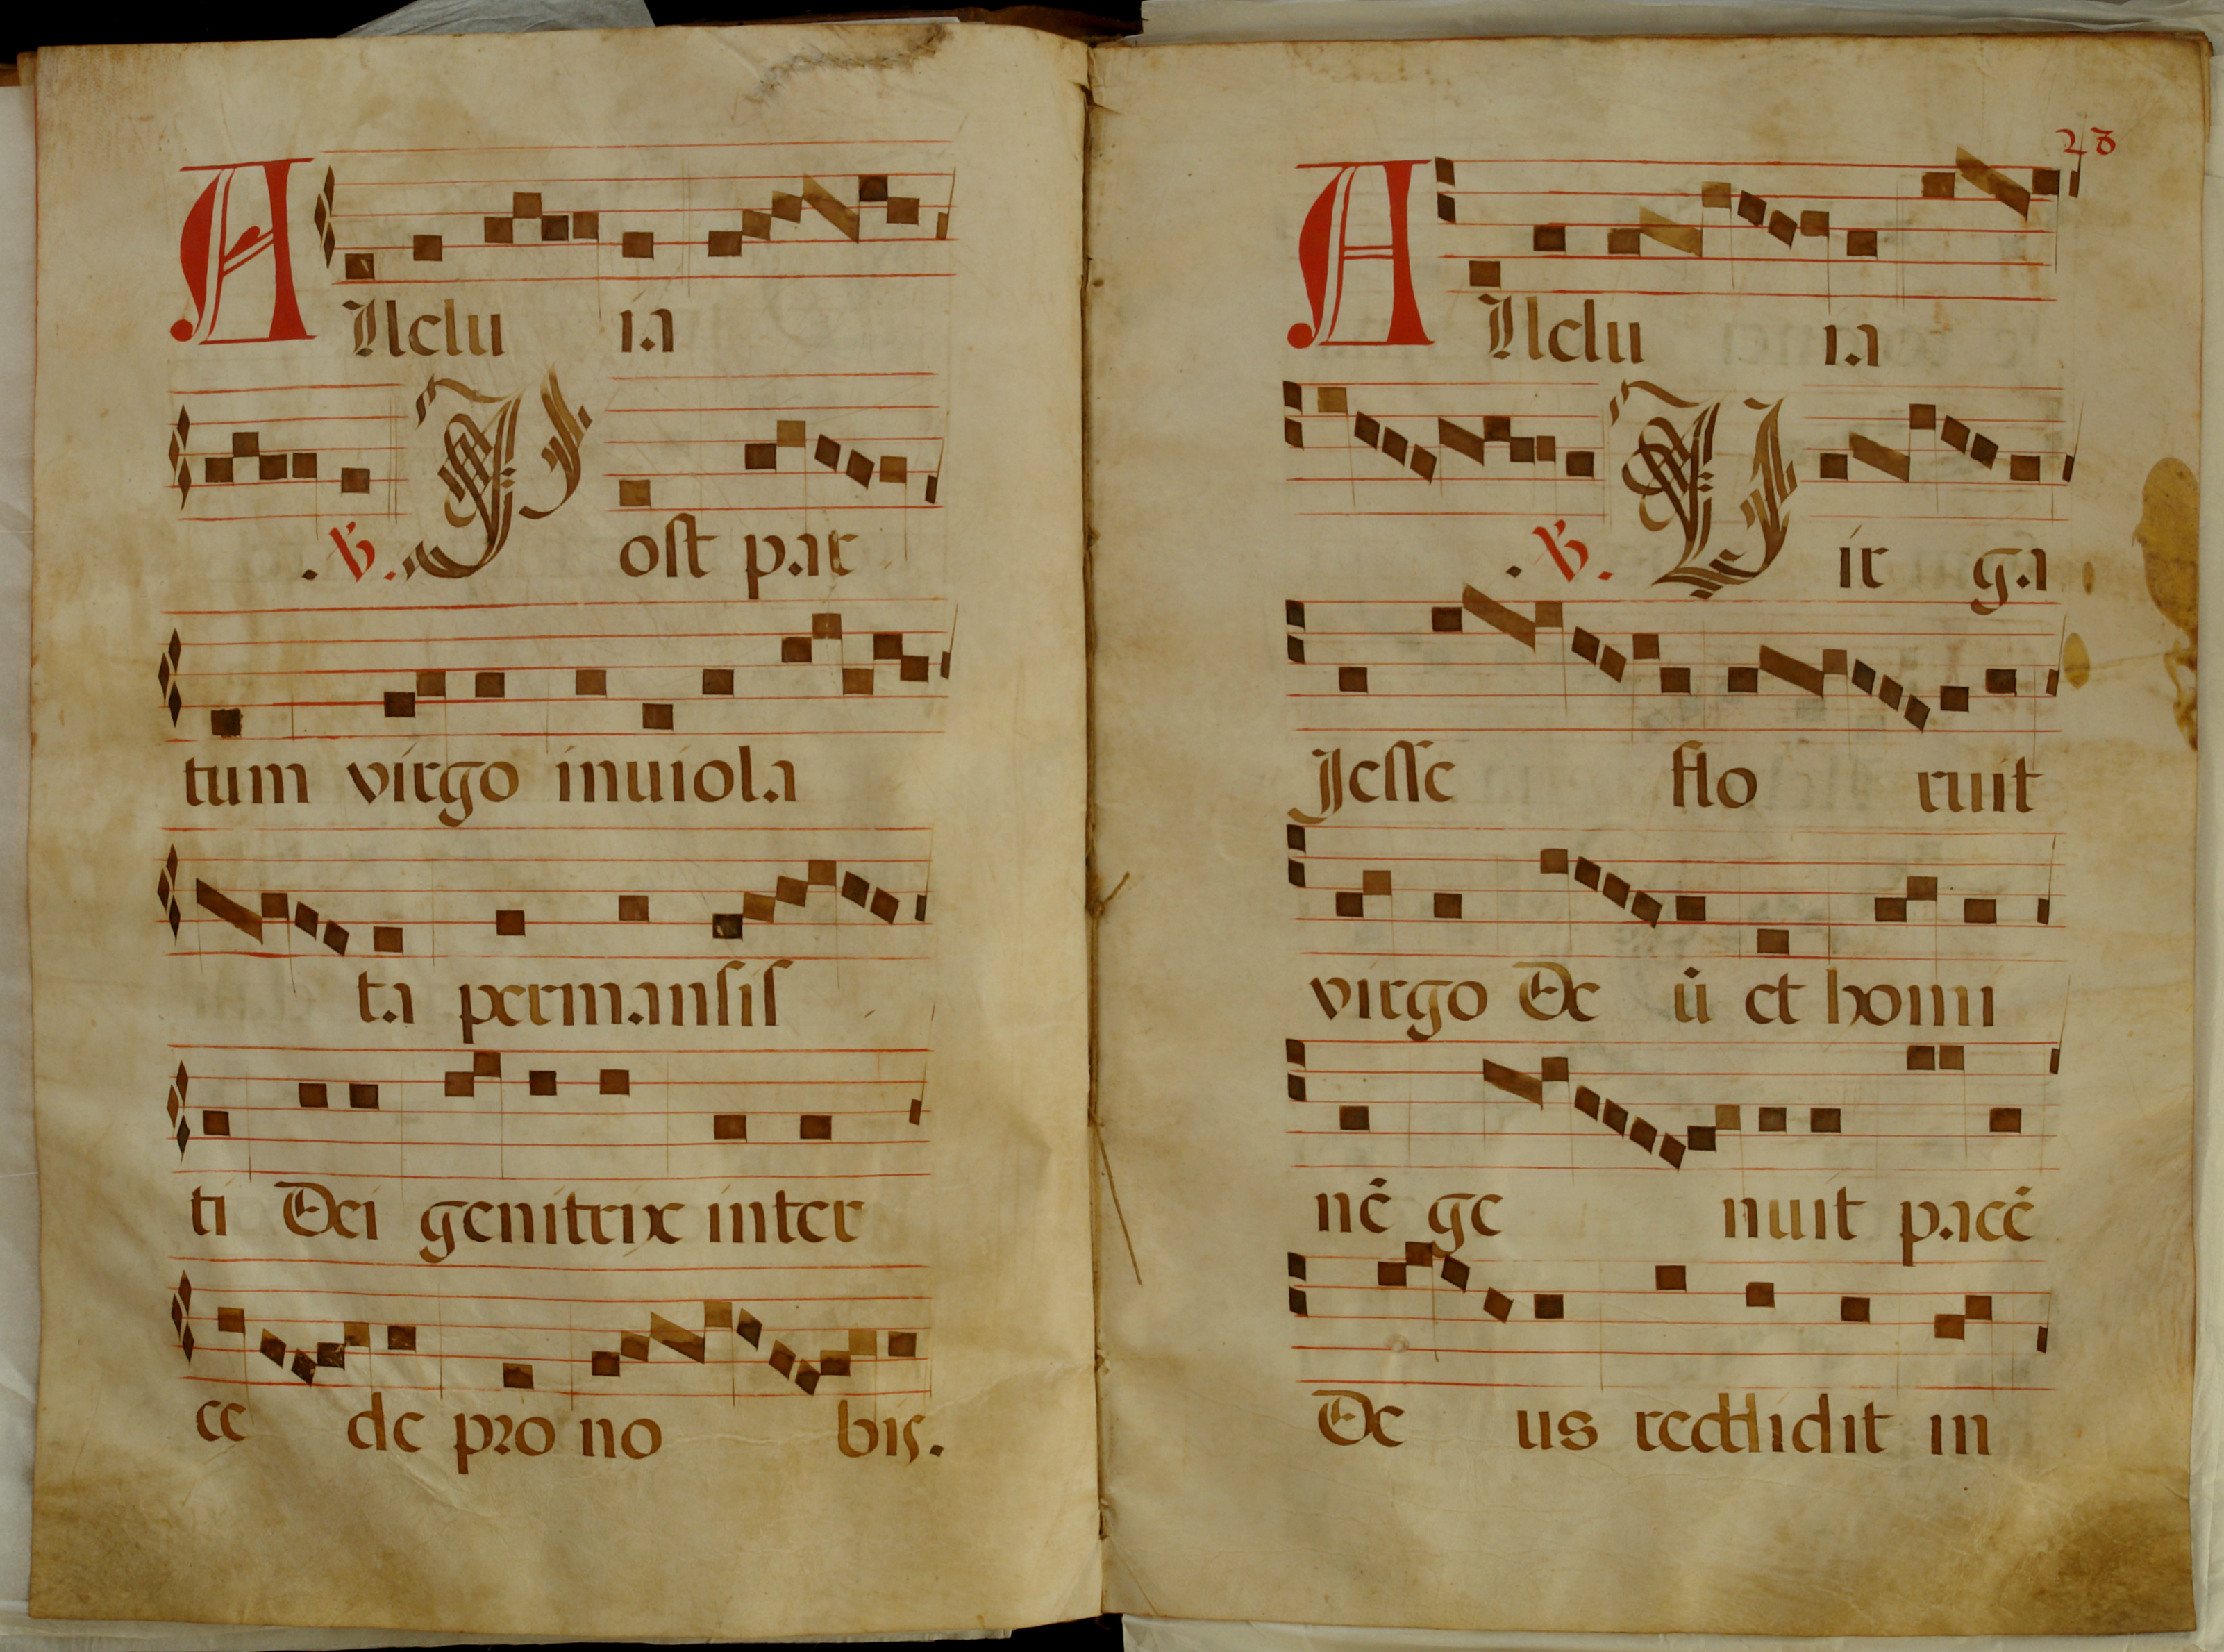 Alleluia
.V. Post par
tum virgo inuiola
ta permansis
ti Dei genitrix inter
ce de pro no bis.
28
Alleluia
.V. Vir ga
Jesse flo ruit
virgo De ū et homi
nē ge nuit pacē
De us reddidit in